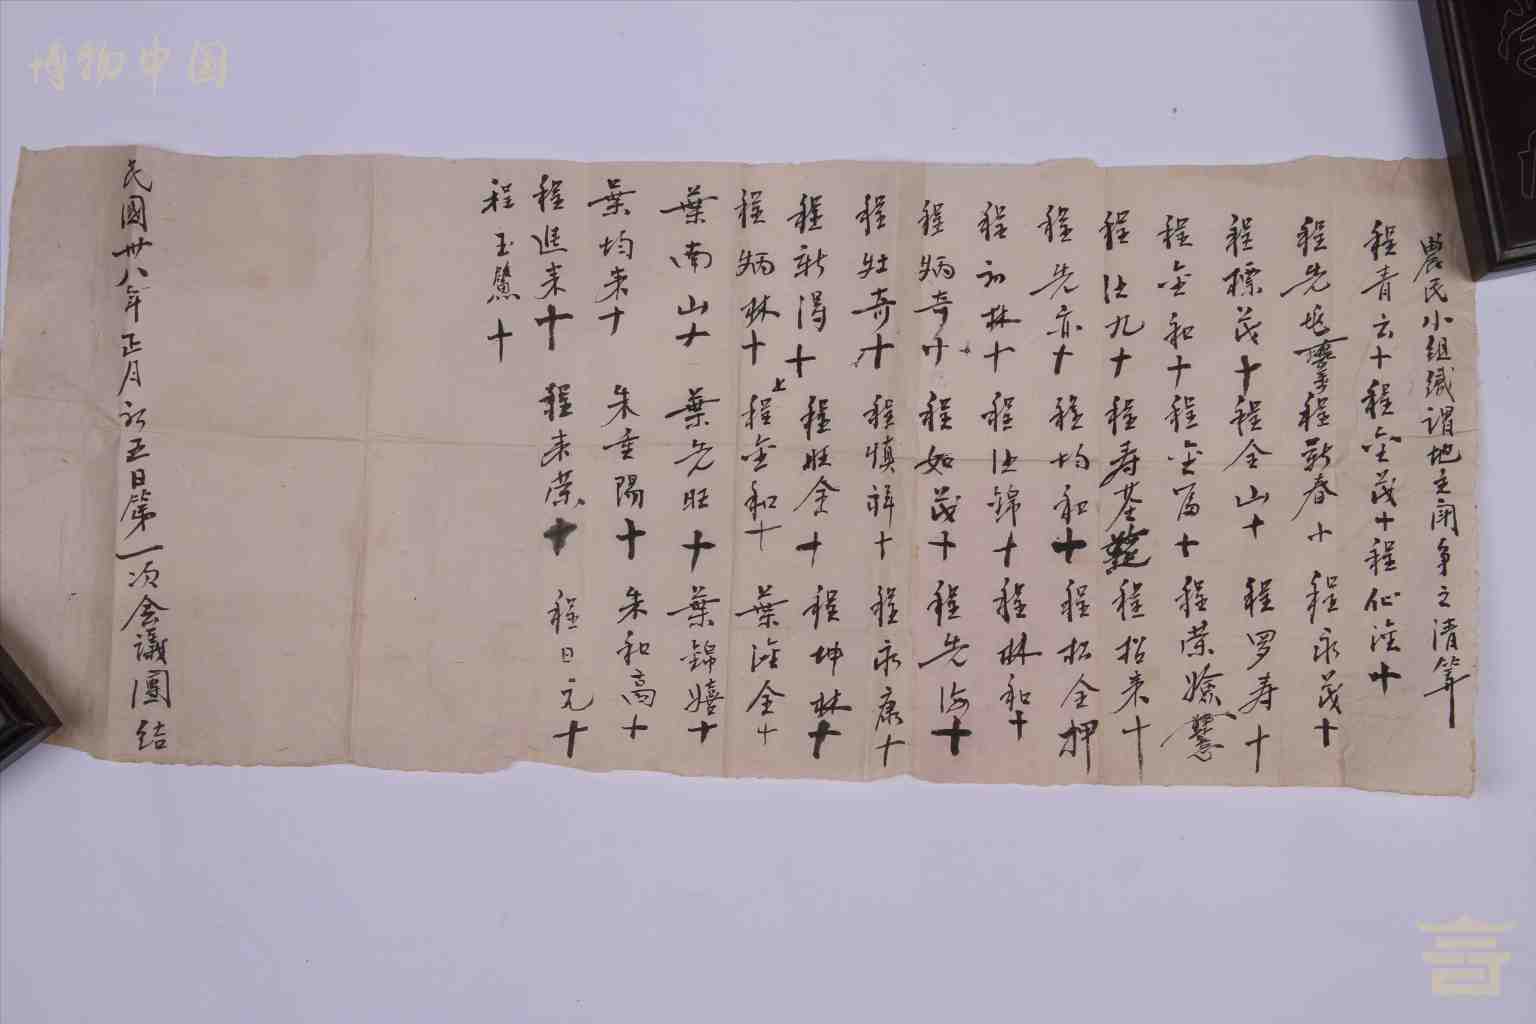 農民小组織謂地主鬭争之清算
程青云十 程金茂十 程 十
程先 程新春十 程永茂十
程標茂十 程全山十 程罗寿十
程金和十 程金富十 程荣
程 九十 程寿基 程招来十
程先亦十 程均和十 程松全押
程初林十 程 锦十 程林和十
程炳奇十 程如茂十 程先海十
程壮奇十 程慎祥十 程永康十
程新得十 程旺余十 程坤林十
程炳林十 上程金和十 葉 全十
葉南山十 葉先旺十 葉錦嬉十
葉均来十 朱重陽十 朱和高十
程進来十 程来荣十 程日元十
程玉 十
民國卅八年正月初五日第一次会議團结
博物中国